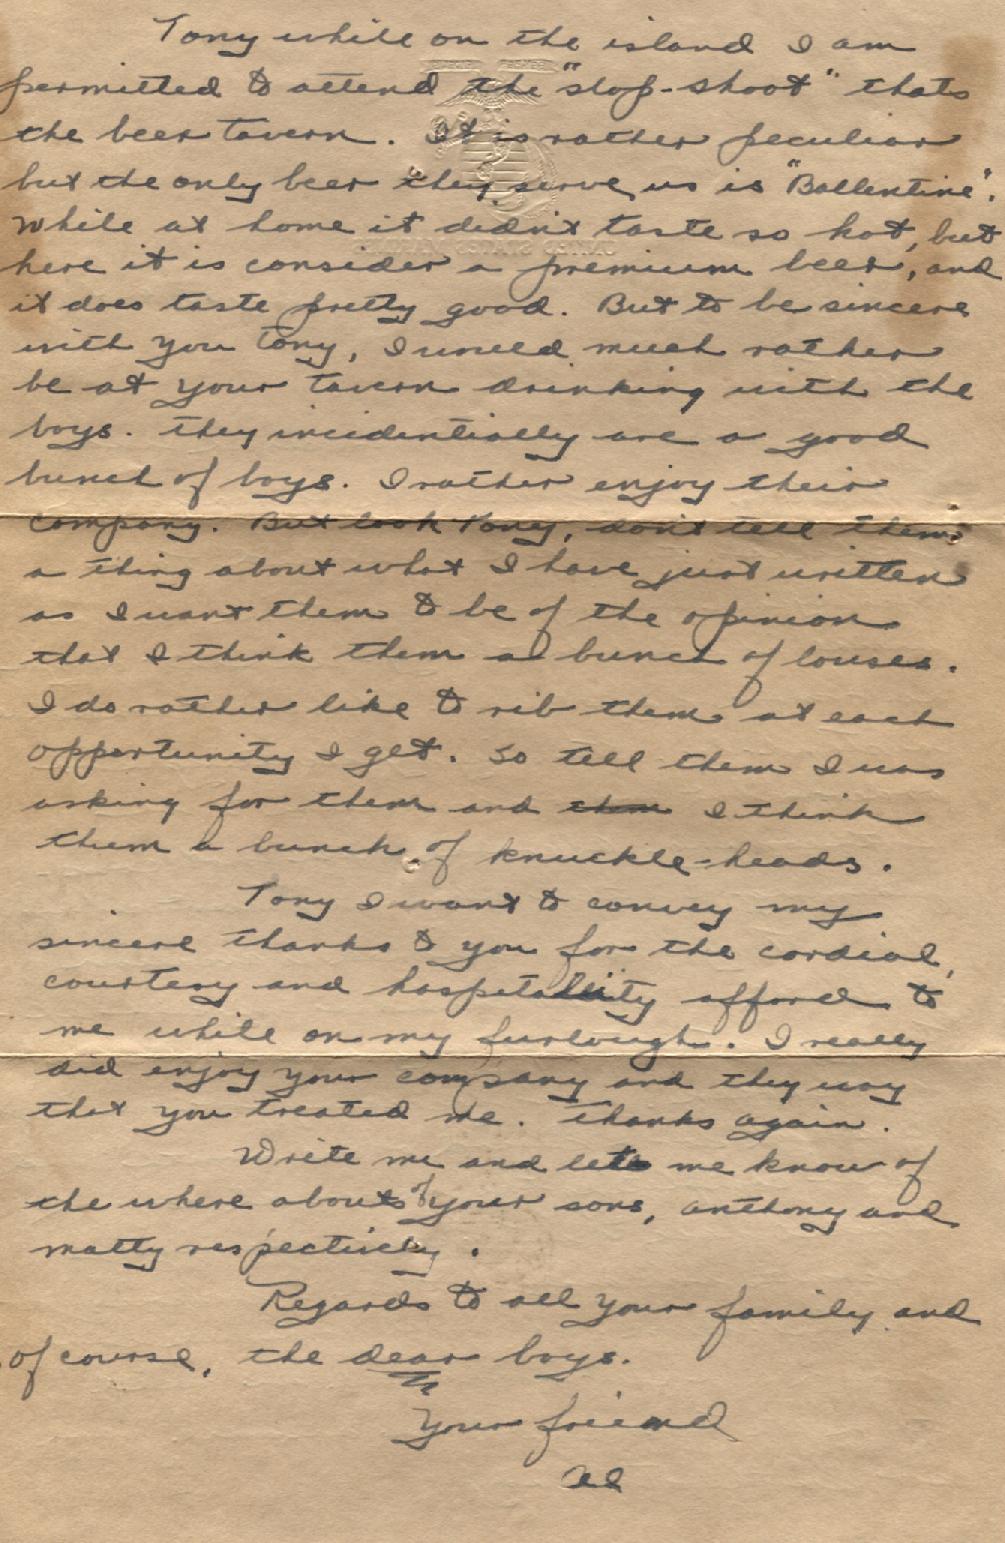 Tony while on the island I am
permitted to attend the "slop-shoot" thats
the beer tavern. It is rather peculiar
but the only beer they serve us is "Ballentine".
While at home it didn't taste so hot, but
here it is consider a premium beer, and
it does taste pretty good. But to be sincere
with you Tony, I would much rather
be at your tavern drinking with the
boys. They incidentially are a good
bunch of boys. I rather enjoy their
company. But look Tony, don't tell them
a thing about what I have just written
as I want them to be of the opinion
that I think them a bunch of louses.
I do rather like to rib them at each
opportunity I get. So tell them I was
asking for them and them I think
them a bunch of knuckle-heads.
Tony I want to convey my
sincere thanks to you for the cordial,
courtesy and hospitality afford to
me while on my furlough. I really
did enjoy your company and they way
that you treated me. Thanks again.
Write me and let me know of
the where abouts of your sons, anthony and
matty respectively.
Regards to all your family and
of course, the dear boys.
Your friend
Al